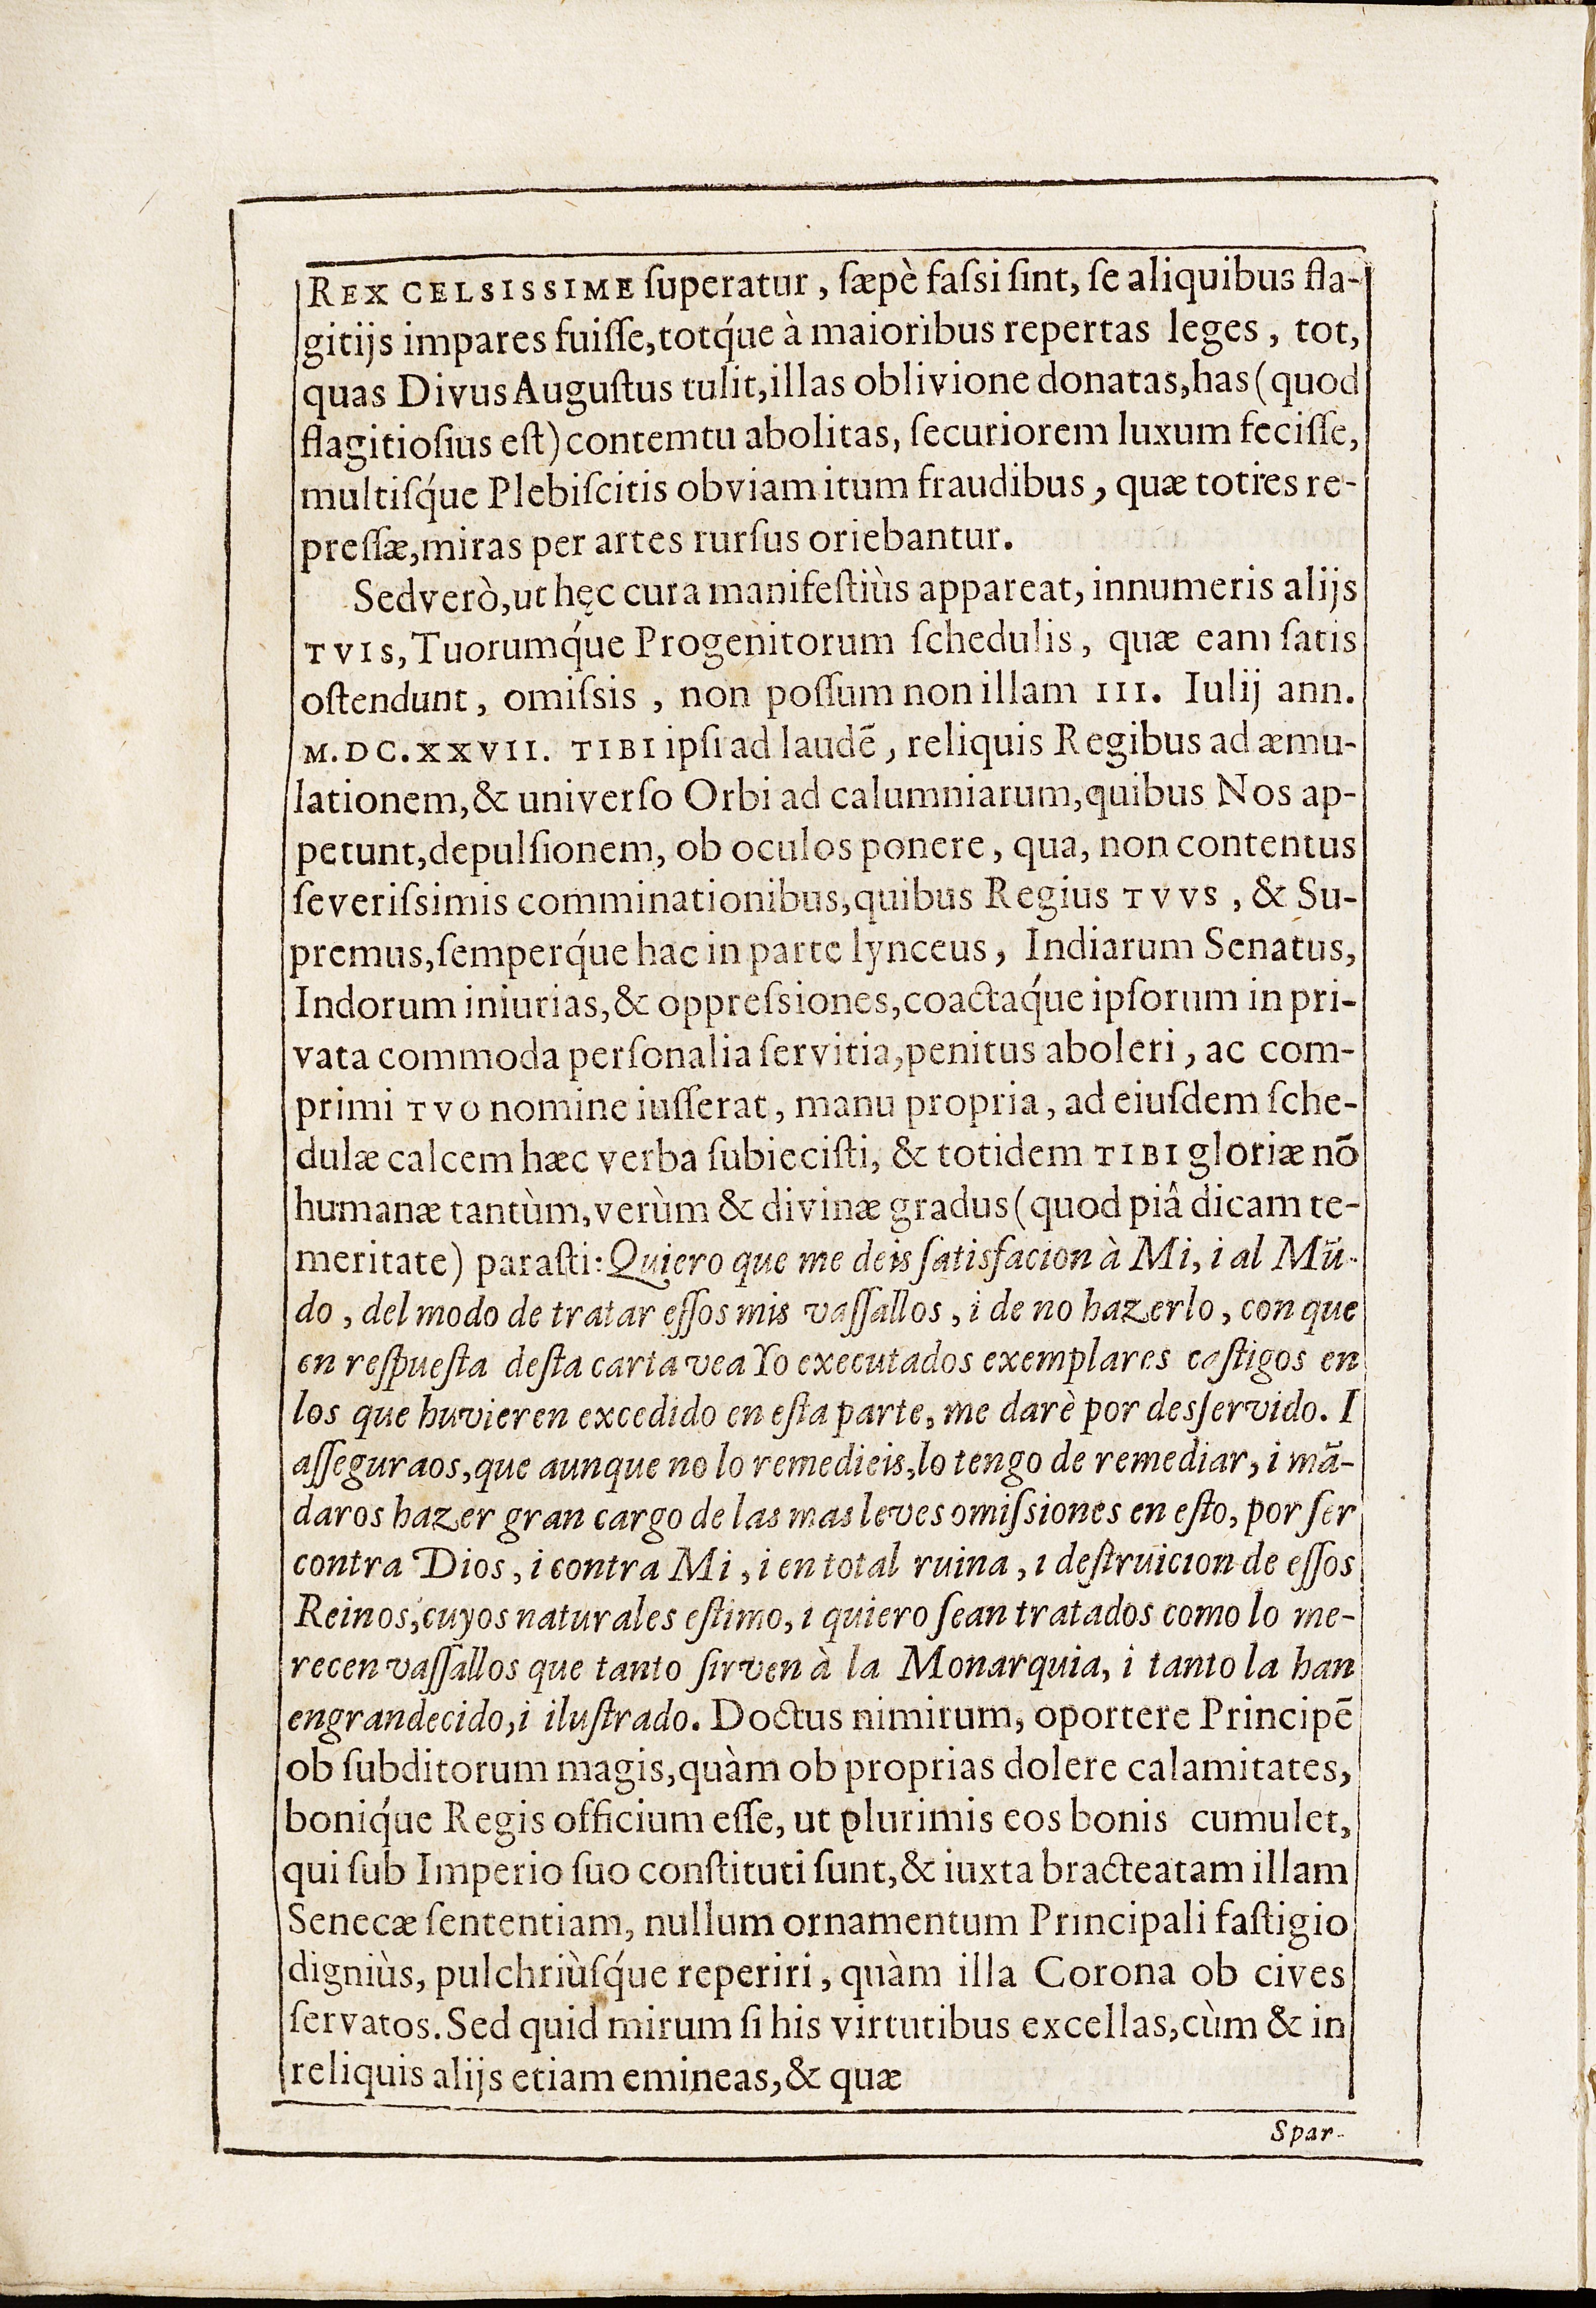 REX CELSISSIME ſuperatur, ſæpè faſsi ſint, ſe aliquibus fla-
gitijs impares fuiſſe, totq́ue à maioribus repertas leges, tot,
quas Divus Auguſtus tulit, illas oblivione donatas, has (quod
flagitioſius eſt) contemtu abolitas, ſecuriorem luxum feciſſe,
multiſq́ue Plebiſcitis obviam itum fraudibus, quæ toties re-
preſſæ, miras per artes rurſus oriebantur.
Sed verò, ut hęc cura manifeſtiùs appareat, innumeris alijs
TVIS, Tuorumq́ue Progenitorum ſchedulis, quæ eam ſatis
oſtendunt, omiſsis, non poſſum non illam III. Iulij ann.
M.DC.XXVII. TIBI ipſi ad laudē, reliquis Regibus ad æmu-
lationem, & univerſo Orbi ad calumniarum, quibus Nos ap-
petunt, depulſionem, ob oculos ponere, qua, non contentus
ſeveriſsimis comminationibus, quibus Regius TVVS, & Su-
premus, ſemperq́ue hac in parte lynceus, Indiarum Senatus,
Indorum iniurias, & oppreſsiones, coactaq́ue ipſorum in pri-
vata commoda perſonalia ſervitia, penitus aboleri, ac com-
primi TVO nomine iuſſerat, manu propria, ad eiuſdem ſche-
dulæ calcem hæc verba ſubieciſti, & totidem TIBI gloriæ nō
humanæ tantùm, verùm & divinæ gradus (quod piâ dicam te-
meritate) paraſti: Quiero que me deis ſatisfacion à Mi, i al Mū-
do, del modo de tratar eſſos mis vaſſallos, i de no hazerlo, con que
en reſpueſta deſta carta vea Yo executados exemplares caſtigos en
los que huvieren excedido en eſta parte, me darè por desſervido. I
aſſeguraos, que aunque no lo remedieis, lo tengo de remediar, i mā-
daros hazer gran cargo de las mas leves omiſsiones en eſto, por ſer
contra Dios, i contra Mi, i en total ruina, i deſtruicion de eſſos
Reinos, cuyos naturales eſtimo, i quiero ſean tratados como lo me-
recen vaſſallos que tanto ſirven à la Monarquia, i tanto la han
engrandecido, i iluſtrado. Doctus nimirum, oportere Principē
ob ſubditorum magis, quàm ob proprias dolere calamitates,
boniq́ue Regis officium eſſe, ut plurimis eos bonis cumulet,
qui ſub Imperio ſuo conſtituti ſunt, & iuxta bracteatam illam
Senecæ ſententiam, nullum ornamentum Principali faſtigio
digniùs, pulchriùſq́ue reperiri, quàm illa Corona ob cives
ſervatos. Sed quid mirum ſi his virtutibus excellas, cùm & in
reliquis alijs etiam emineas, & quæ
Spar-